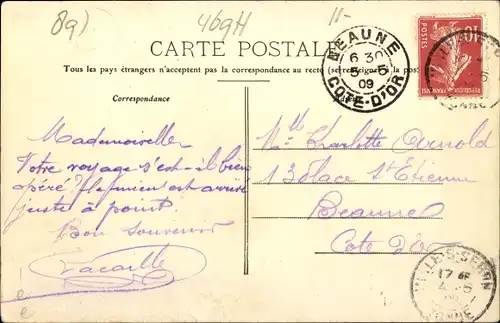 8a)
469H
11-
CARTE POSTALE
Tous les pays étrangers n'acceptent pas la correspondance au recto (se renseigner à la poste)
Correspondance
BEAUNE
6 30
5-5
09
COTE-D'OR
10
POSTES
REPUBLIQUE FRANÇAISE
Mademoiselle
Votre voyage s'est-il bien
opéré? Le mien est arrivé
juste à point.
Bon souvenir
Lacaille
Mlle Charlotte Arnold
13 place St Etienne
Beaune
Cote d'Or
17
4-5
YONNE